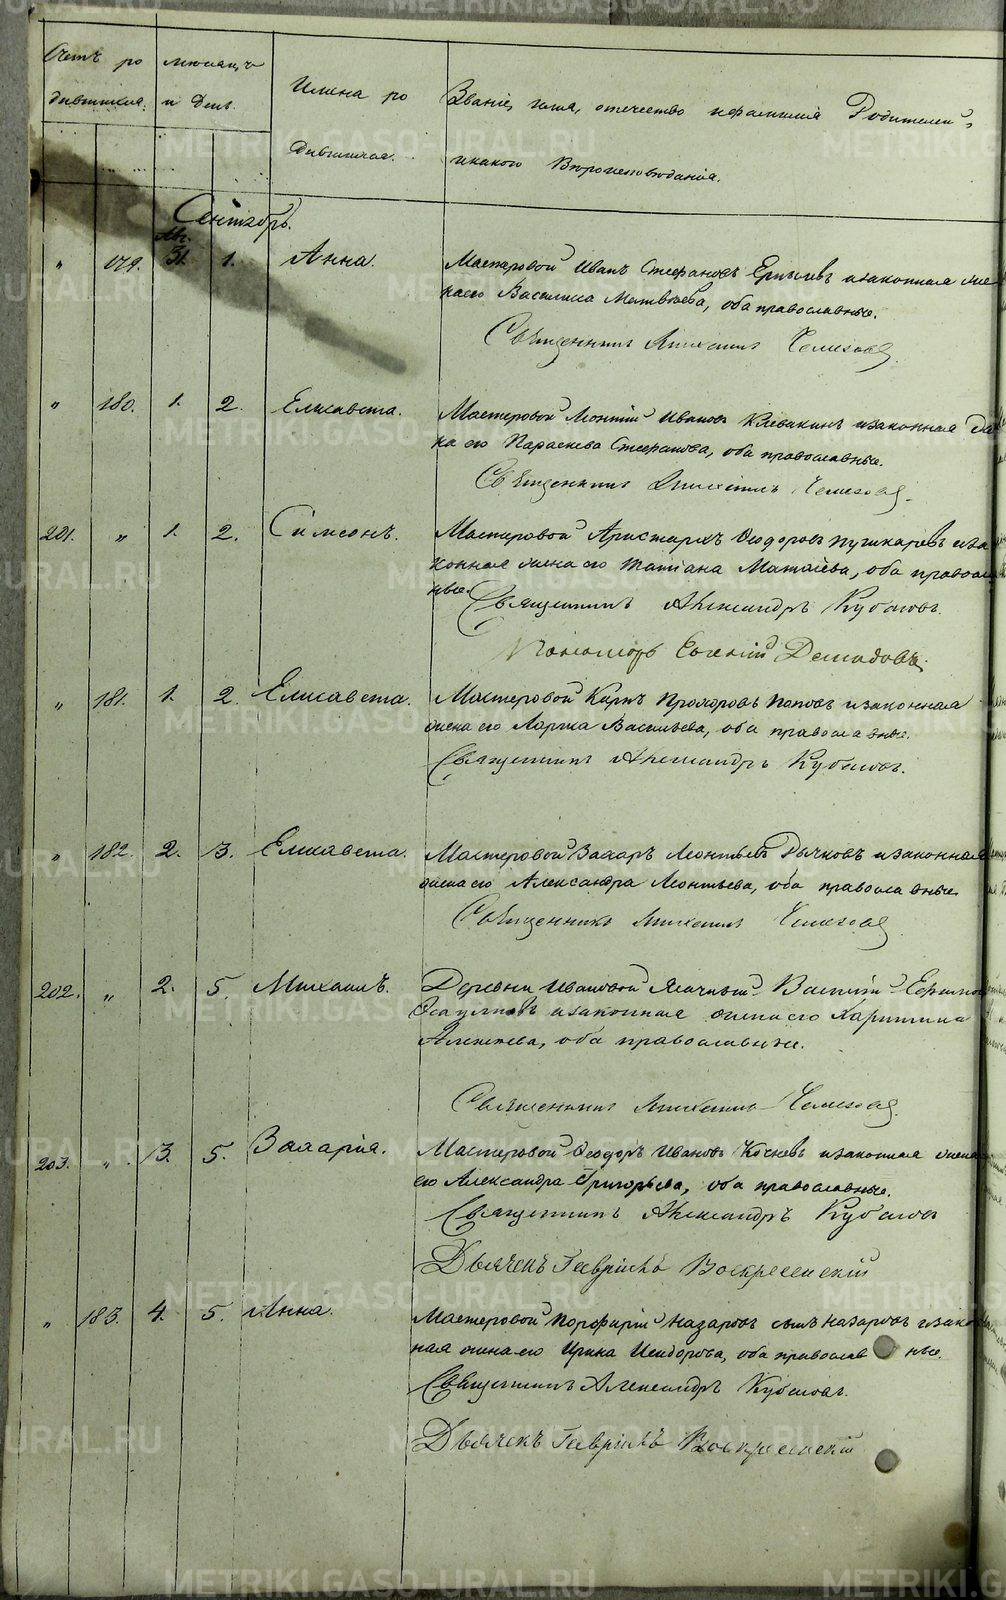 Счетъ ро мѣсяцъ
дившихся. и день.
Имена ро
дившихся.
Званіе, имя, отечество и фамилія Родителей,
и какого Вѣроисповѣданія.
Сентябрь.
" 179. Ав. 31. 1. Анна. Мастеровой Иванъ Стефановъ и законная же
на его Василиса Матвѣева, оба православные.
Священникъ Михаилъ
" 180. 1. 2. Елисавета. Мастеровой Леонтій Ивановъ Клевакинъ и законная
на его Параскева Стефанова, оба православные.
Священникъ Михаилъ
201. " 1. 2. Симеонъ. Мастеровой Аристархъ Ѳеодоровъ Пушкаревъ и за
конная жена его Татіана Матѳіева, оба православ
ные.
Священникъ Александръ
Пономарь Евгеній Демидовъ.
" 181. 1. 2. Елисавета. Мастеровой Карпъ Прохоровъ Поповъ и законная
жена его Марѳа Васильева, оба православные.
Священникъ Александръ
" 182. 2. 3. Елисавета. Мастеровой Захаръ Леонтьевъ Рычковъ и законная
жена его Александра Леонтьева, оба православные.
Священникъ Михаилъ
202. " 2. 5. Михаилъ. Деревни Ивановой
и законная жена его Харитина
Алексѣева, оба православные.
Священникъ Михаилъ
203. " 3. 5. Захарія. Мастеровой Ѳеодоръ Ивановъ Кочневъ и законная жена
его Александра Григорьева, оба православные.
Священникъ Александръ
Дьячекъ Гавріилъ Воскресенскій
" 183. 4. 5. Анна. Мастеровой Порфирій Назаровъ сынъ Назаровъ и закон
ная жена его Ирина Исидорова, оба православ ные.
Священникъ Александръ
Дьячекъ Гавріилъ Воскресенскій
METRIKI.GASO-URAL.RU